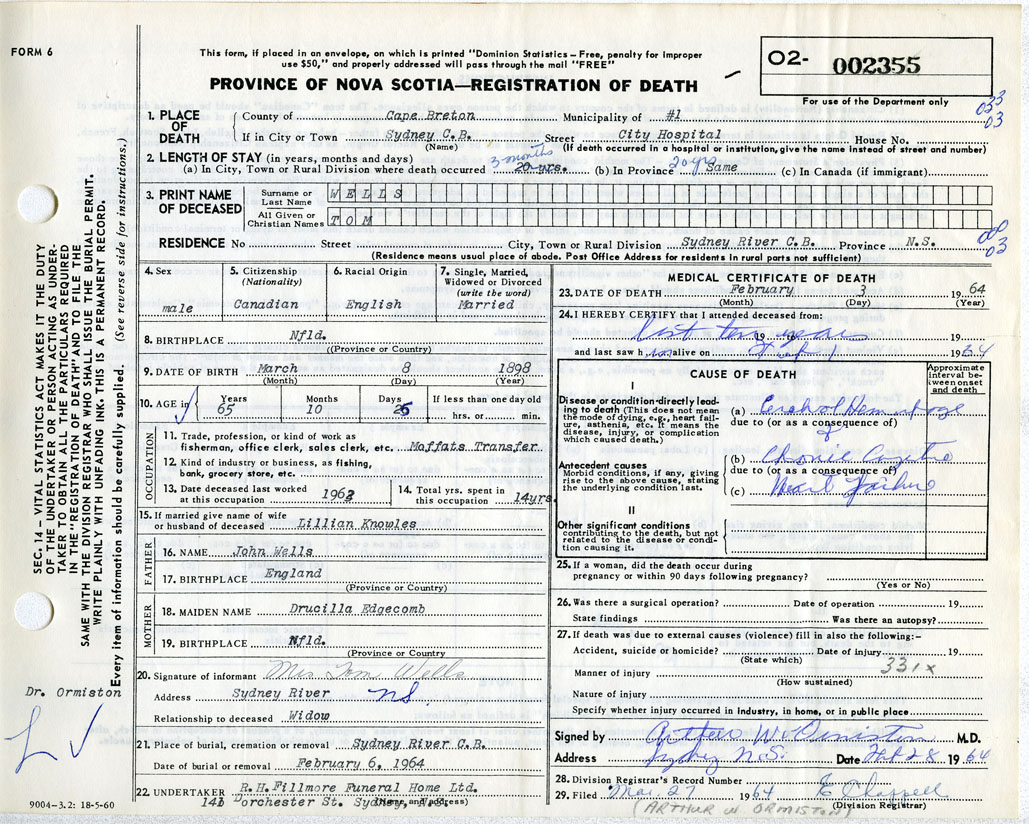 FORM 6
This form, if placed in an envelope, on which is printed "Dominion Statistics – Free, penalty for improper
use $50," and properly addressed will pass through the mail "FREE"
PROVINCE OF NOVA SCOTIA—REGISTRATION OF DEATH
02- 002355
For use of the Department only
033
03
1. PLACE OF DEATH
County of Cape Breton Municipality of #1
If in City or Town Sydney C.B. Street City Hospital House No.
(Name) (If death occurred in a hospital or institution, give the name instead of street and number)
2. LENGTH OF STAY (in years, months and days)
(a) In City, Town or Rural Division where death occurred 3 months 20 yrs. (b) In Province 20 yrs Same (c) In Canada (if immigrant)
3. PRINT NAME OF DECEASED
Surname or Last Name WELLS
All Given or Christian Names TOM
000
03
RESIDENCE No Street City, Town or Rural Division Sydney River C.B. Province N.S.
(Residence means usual place of abode. Post Office Address for residents in rural parts not sufficient)
4. Sex male
5. Citizenship (Nationality) Canadian
6. Racial Origin English
7. Single, Married, Widowed or Divorced (write the word) Married
8. BIRTHPLACE Nfld.
(Province or Country)
9. DATE OF BIRTH March 8 1898
(Month) (Day) (Year)
10. AGE in Years 65 Months 10 Days 25 If less than one day old hrs. or min.
OCCUPATION
11. Trade, profession, or kind of work as
fisherman, office clerk, sales clerk, etc. Moffats Transfer
12. Kind of industry or business, as fishing,
bank, grocery store, etc.
13. Date deceased last worked at this occupation 1962
14. Total yrs. spent in this occupation 14yrs.
15. If married give name of wife
or husband of deceased Lillian Knowles
FATHER
16. NAME John Wells
17. BIRTHPLACE England
(Province or Country)
MOTHER
18. MAIDEN NAME Drucilla Edgecomb
19. BIRTHPLACE Nfld.
(Province or Country
20. Signature of informant Mrs Tom Wells
Address Sydney River NS.
Relationship to deceased Widow
21. Place of burial, cremation or removal Sydney River C.B.
Date of burial or removal February 6, 1964
22. UNDERTAKER R.H. Fillmore Funeral Home Ltd.
Dorchester St. Sydney, N.S.
(Name and address)
MEDICAL CERTIFICATE OF DEATH
23. DATE OF DEATH February 3 1964
(Month) (Day) (Year)
24. I HEREBY CERTIFY that I attended deceased from:
last ten years 19 19
and last saw him alive on Feb 1 1964
CAUSE OF DEATH
Approximate interval between onset and death
I
Disease or condition directly leading to death (This does not mean the mode of dying, e.g., heart failure, asthenia, etc. It means the disease, injury, or complication which caused death.)
(a) Cerebral Hemorrhage
due to (or as a consequence of)
Antecedent causes
Morbid conditions, if any, giving rise to the above cause, stating the underlying condition last.
(b) Chronic
due to (or as a consequence of)
(c) Heart Failure
II
Other significant conditions
contributing to the death, but not related to the disease or condition causing it.
25. If a woman, did the death occur during
pregnancy or within 90 days following pregnancy?
(Yes or No)
26. Was there a surgical operation? Date of operation 19
State findings Was there an autopsy?
27. If death was due to external causes (violence) fill in also the following:-
Accident, suicide or homicide? Date of injury 19
(State which)
331x
Manner of injury
(How sustained)
Nature of injury
Specify whether injury occurred in industry, in home, or in public place
Signed by Arthur W Ormiston M.D.
Address Sydney N.S. Date Feb 28 1964
28. Division Registrar's Record Number
29. Filed Mar. 27 1964 E Chappell
(Division Registrar)
(ARTHUR W. ORMISTON)
SEC. 14 – VITAL STATISTICS ACT MAKES IT THE DUTY
OF THE UNDERTAKER OR PERSON ACTING AS UNDER-
TAKER TO OBTAIN ALL THE PARTICULARS REQUIRED
IN THE "REGISTRATION OF DEATH" AND TO FILE THE
SAME WITH THE DIVISION REGISTRAR WHO SHALL ISSUE THE BURIAL PERMIT.
WRITE PLAINLY WITH UNFADING INK. THIS IS A PERMANENT RECORD.
Every item of information should be carefully supplied. (See reverse side for instructions.)
Dr. Ormiston
9004-3.2: 18-5-60